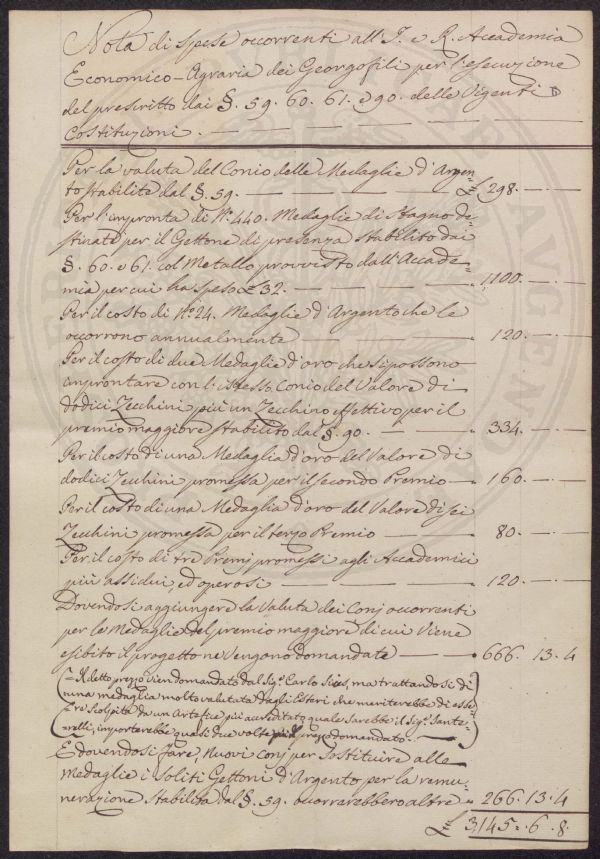 Nota di Spese occorrenti all'I. e R. Accademia
Economico-Agraria dei Georgofili per l'esecuzione
del prescritto dai §. 59. 60. 61. e 90. delle Vigenti
Costituzioni. —
Per la valuta del Conio delle Medaglie d'Argen=
to stabilite dal §. 59. — £ 298. — . —
Per l'impronta di N.º 440. Medaglie di Stagno de=
stinate per il Gettone di presenza stabilito dai
§. 60. e 61. col Metallo provvisto dall'Accade=
mia per cui ha speso £ 32. — 1100. — . —
Per il costo di N.º 24. Medaglie d'Argento che le
occorrono annualmente — 120. — . —
Per il costo di due Medaglie d'oro che si possono
improntare con l'istesso Conio del Valore di
dodici Zecchini più un Zecchino effettivo per il
premio maggiore stabilito dal §. 90. — 334. — . —
Per il costo di una Medaglia d'oro del Valore di
dodici Zecchini promessa per il secondo Premio — 160. — . —
Per il costo di una Medaglia d'oro del Valore di sei
Zecchini promessa per il terzo Premio — 80. — . —
Per il costo di tre Premj promessi agli Accademici
più assidui, ed operosi — 120. — . —
Dovendosi aggiungere la Valuta dei Conj occorrenti
per le Medaglie del premio maggiore di cui Viene
esibito il progetto ne Vengono domandate — 666. 13. 4
= Il detto prezzo vien domandato dal Sig.r Carlo Siries, ma trattandosi di
una medaglia molto valutata dagli Esteri che meriterebbe di esse=
re scolpita da un Artefice più accreditato quale sarebbe il Sig.r Santa=
relli, importerebbe quasi due volte più il prezzo domandato. —
E dovendosi fare, nuovi Conj per sostituire alle
Medaglie i soliti Gettoni d'Argento per la remu=
nerazione Stabilita dal §. 59. occorrerebbero altre 266. 13. 4
£ 3145. 6. 8.